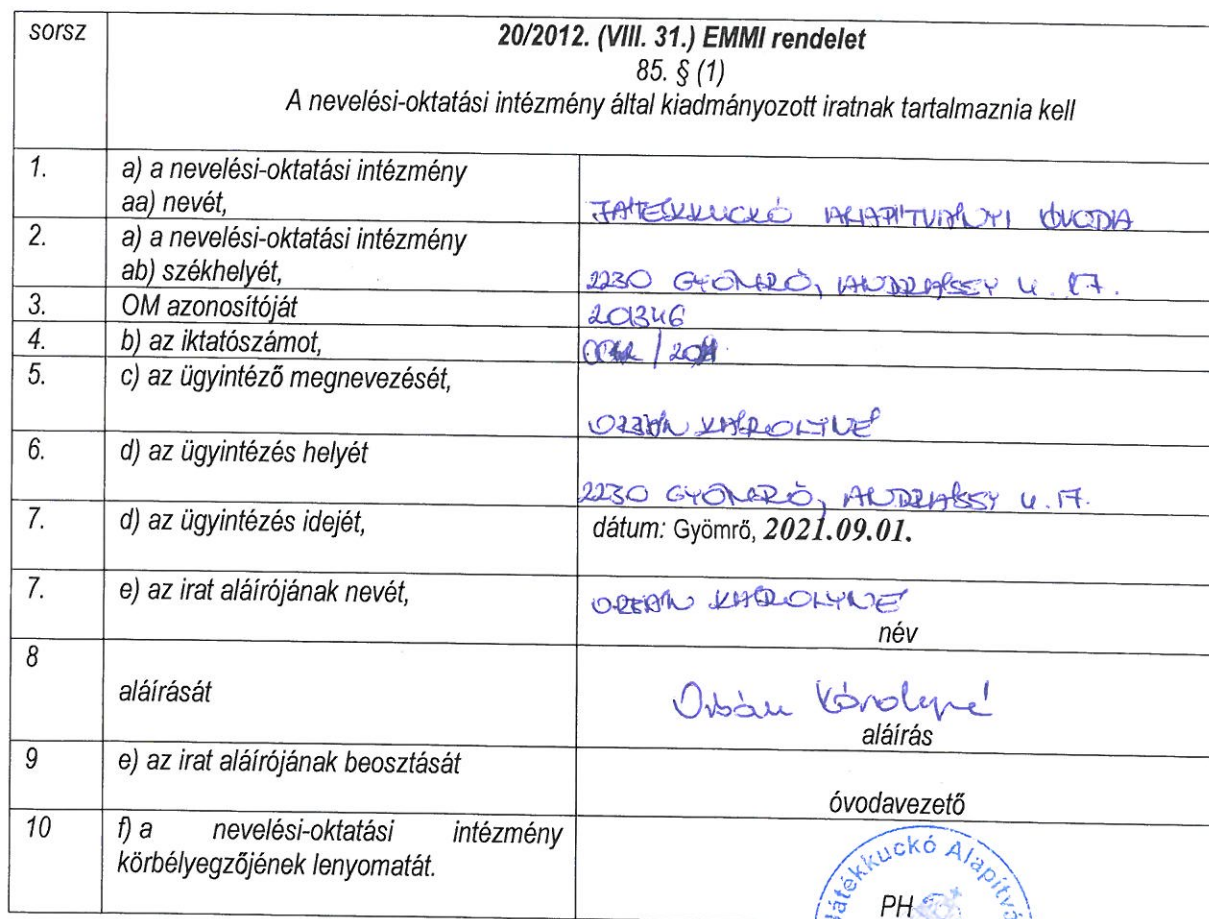 sorsz
20/2012. (VIII. 31.) EMMI rendelet
85. § (1)
A nevelési-oktatási intézmény által kiadmányozott iratnak tartalmaznia kell
1.
a) a nevelési-oktatási intézmény
aa) nevét,
JÁTÉKKUCKÓ ALAPÍTVÁNYI ÓVODA
2.
a) a nevelési-oktatási intézmény
ab) székhelyét,
2230 GYÖMRŐ, ANDRÁSSY U. 17.
3.
OM azonosítóját
201346
4.
b) az iktatószámot,
5.
c) az ügyintéző megnevezését,
ORBÁN KÁROLYNÉ
6.
d) az ügyintézés helyét
2230 GYÖMRŐ, ANDRÁSSY U. 17.
7.
d) az ügyintézés idejét,
dátum: Gyömrő, 2021.09.01.
7.
e) az irat aláírójának nevét,
ORBÁN KÁROLYNÉ
név
8
aláírását
Orbán Károlyné
aláírás
9
e) az irat aláírójának beosztását
óvodavezető
10
f) a nevelési-oktatási intézmény
körbélyegzőjének lenyomatát.
Játékkuckó Alapítvá
PH